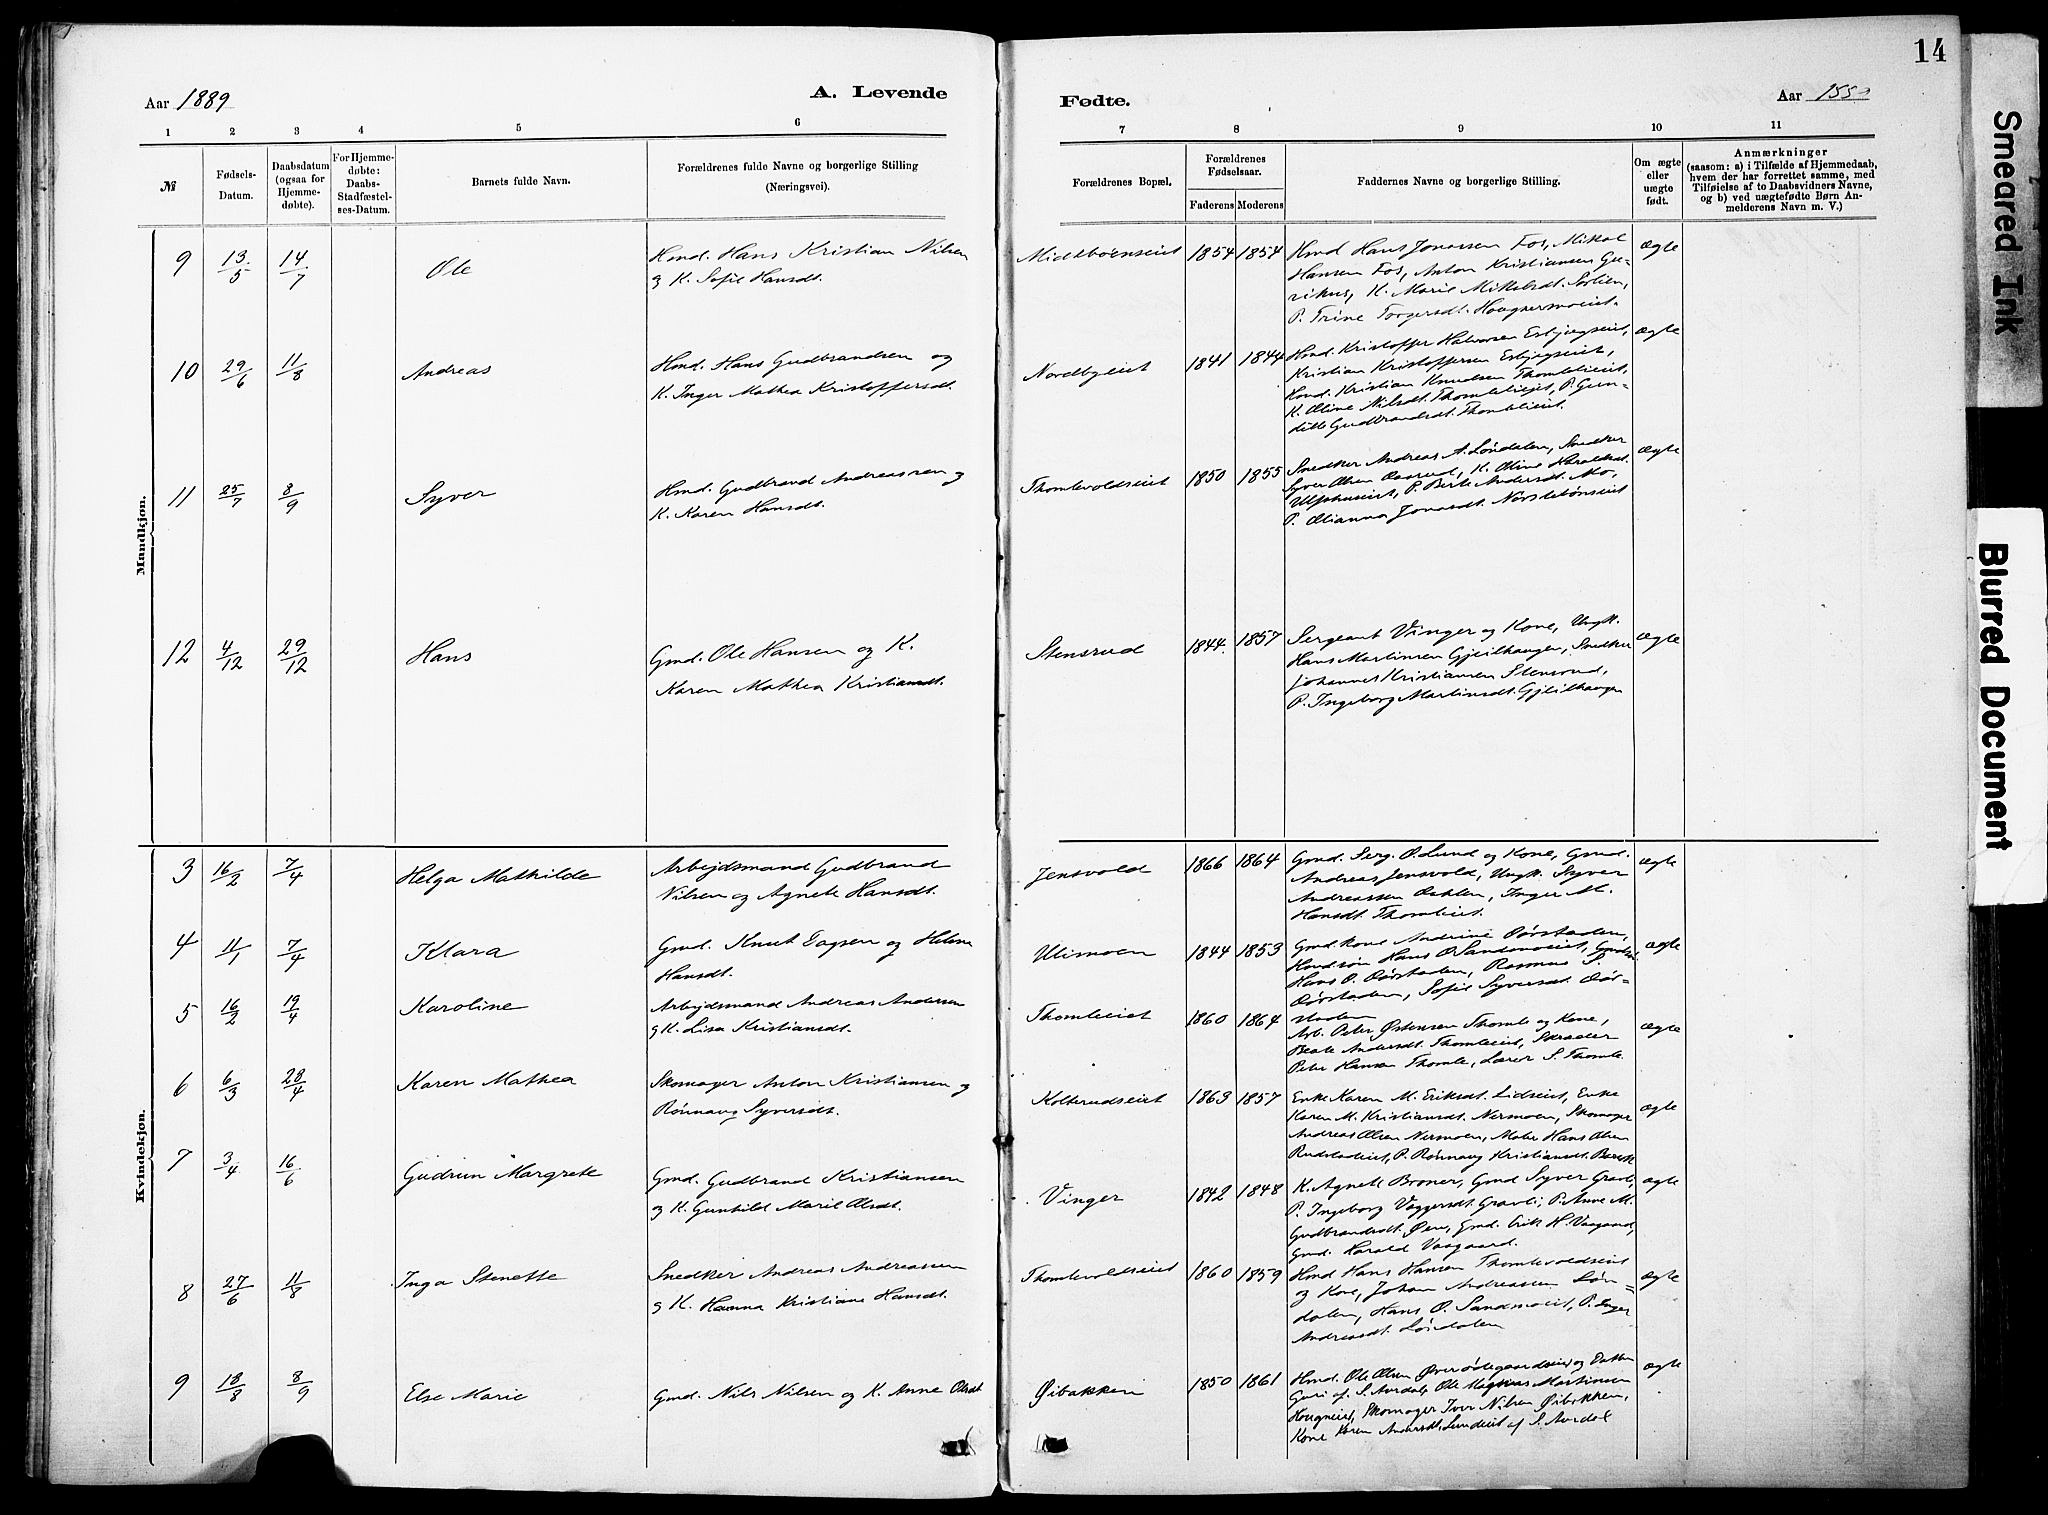 14
Aar 1889
A. Levende
Fødte.
Aar
1 2 3 4 5 6 7 8 9 10 11
№
Fødsels-
Datum.
Daabsdatum
(ogsaa for
Hjemme-
døbte).
For Hjemme-
døbte:
Daabs-
Stadfæstel-
ses-Datum.
Barnets fulde Navn.
Forældrenes fulde Navne og borgerlige Stilling
(Næringsvei).
Forældrenes Bopæl.
Forældrenes
Fødselsaar.
Faderens Moderens
Faddernes Navne og borgerlige Stilling.
Om ægte
eller
uægte
født.
Anmærkninger
(saasom: a) i Tilfælde af Hjemmedaab,
hvem der har forrettet samme, med
Tilføielse af to Daabsvidners Navne,
og b) ved uægtefødte Børn An-
melderens Navn m. V.)
Mandkjøn.
9 13/5 14/7 Ole
Hmd. Hans Kristian Nilsen
og K. Sofie Hansdt.
1854 1854
Hmd Hans Jonassen Fos, Mikal
Hansen Fos, Anton Kristiansen Gu-
rihus, K. Marie Mikelsdt. Sørlien,
P. Trine Torgersdt. Hougnermoeiet.
ægte
10 29/6 11/8 Andreas
Hmd. Hans Gudbrandsen og
K. Inger Mathea Kristoffersdt.
Nordbyeiet 1841 1844
Hmd. Kristoffer Halvorsen Esbjugseiet,
Kristian Kristoffersen Esbjugseiet,
Hmd. Kristian Knudsen Thomleeiet,
K. Oline Nilsdt. Thomleeiet, P. Gun-
hilde Gudbrandsdt. Thomleeiet.
ægte
11 25/7 8/9 Syver
Hmd. Gudbrand Andreassen og
K. Karen Hansdt.
Thomlevoldseiet 1850 1855
Snedker Andreas A. Løndalen, Snedker
Syver Olsen Aaserud, K. Oline Haraldsdt.
P. Berte Andersdt. Mo,
P. Olianna Jonasdt.
ægte
12 4/12 29/12 Hans
Gmd. Ole Hansen og K.
Karen Mathea Kristiansdt.
Stensrud 1844. 1857
Sergeant Vinger og Kone, Ungk.
Hans Martinsen Gjeilhaugen, Snedker
Johannes Kristiansen Stensrud,
P. Ingeborg Martinsdt. Gjeilhaugen
ægte
Kvindekjøn.
3 16/2 7/4 Helga Mathilde
Arbejdsmand Gudbrand
Nilsen og Agnete Hansdt.
Jensvold 1866 1864
Gmd. Serg. O. Lund og Kone, Gmd.
Andreas Jensvold, Ungk. Syver
Andreassen Inger M.
Hansdt. Thomleeiet.
ægte
4 11/1 7/4 Klara
Gmd. Knut Dagsen og Helene
Hansdt.
Ulismoen 1844 1853
Gmd. Kone Andrine
Hmd søn Hans O. Sandmoeiet,
Hans O. Rasmus P.
Sofie Syversdt.
ægte
5 16/2 19/4 Karoline
Arbejdsmand Andreas Andersen
og K. Lisa Kristiansdt.
Thomleeiet 1860 1864
Arb. Peter Østensen Thomle og Kone,
Beate Andersdt. Thomleeiet, Skræder
Peter Hansen Thomle, Lærer S. Thomle.
ægte
6 6/3 28/4 Karen Mathea
Skomager Anton Kristiansen og
Rønnaug Syversdt.
Kolterudseiet 1863 1857
Enke Karen M. Eriksdt. Lidseiet, Enke
Karen M. Kristiansdt. Nermoen, Skomager
Andreas Olsen Nermoen, Maler Hans Olsen
Rudstadeiet, P. Rønnaug Kristiansdt.
ægte
7 3/4 16/6 Gudrun Margrete
Gmd. Gudbrand Kristiansen
og K. Gunhild Marie Olsdt.
Vinger 1842 1848
K. Agnete Broner, Gmd Syver Gravli,
P. Ingeborg Vaggersdt. Gravli, P. Anne M.
Gudbrandsdt. Øen, Gmd. Erik H. Vaagaard,
Gmd. Harald Vaagaard.
ægte
8 27/6 11/8 Inga Stenette
Snedker Andreas Andreassen
og K. Hanna Kristiane Hansdt.
Thomlevoldseiet 1860 1859
Hmd Hans Hansen Thomlevoldseiet
og Kone, Johan Andreassen Løn-
dalen, Hans O. Sandmoeiet, P. Inger
Andreasdt. Løndalen
ægte
9 18/8 8/9 Else Marie
Gmd. Nils Nilsen og K. Anne Olsdt
Øibakken 1850 1861
Hmd. Ole Olsen Øverødegaardseiet og Datter
Guri af S. Aurdal, Ole Magnus Martinsen
Hougneiet, Skomager Iver Nilsen Øibakken,
Kone Karen Andersdt. Lundeiet af S. Aurdal
ægte
Smeared Ink
Blurred Document